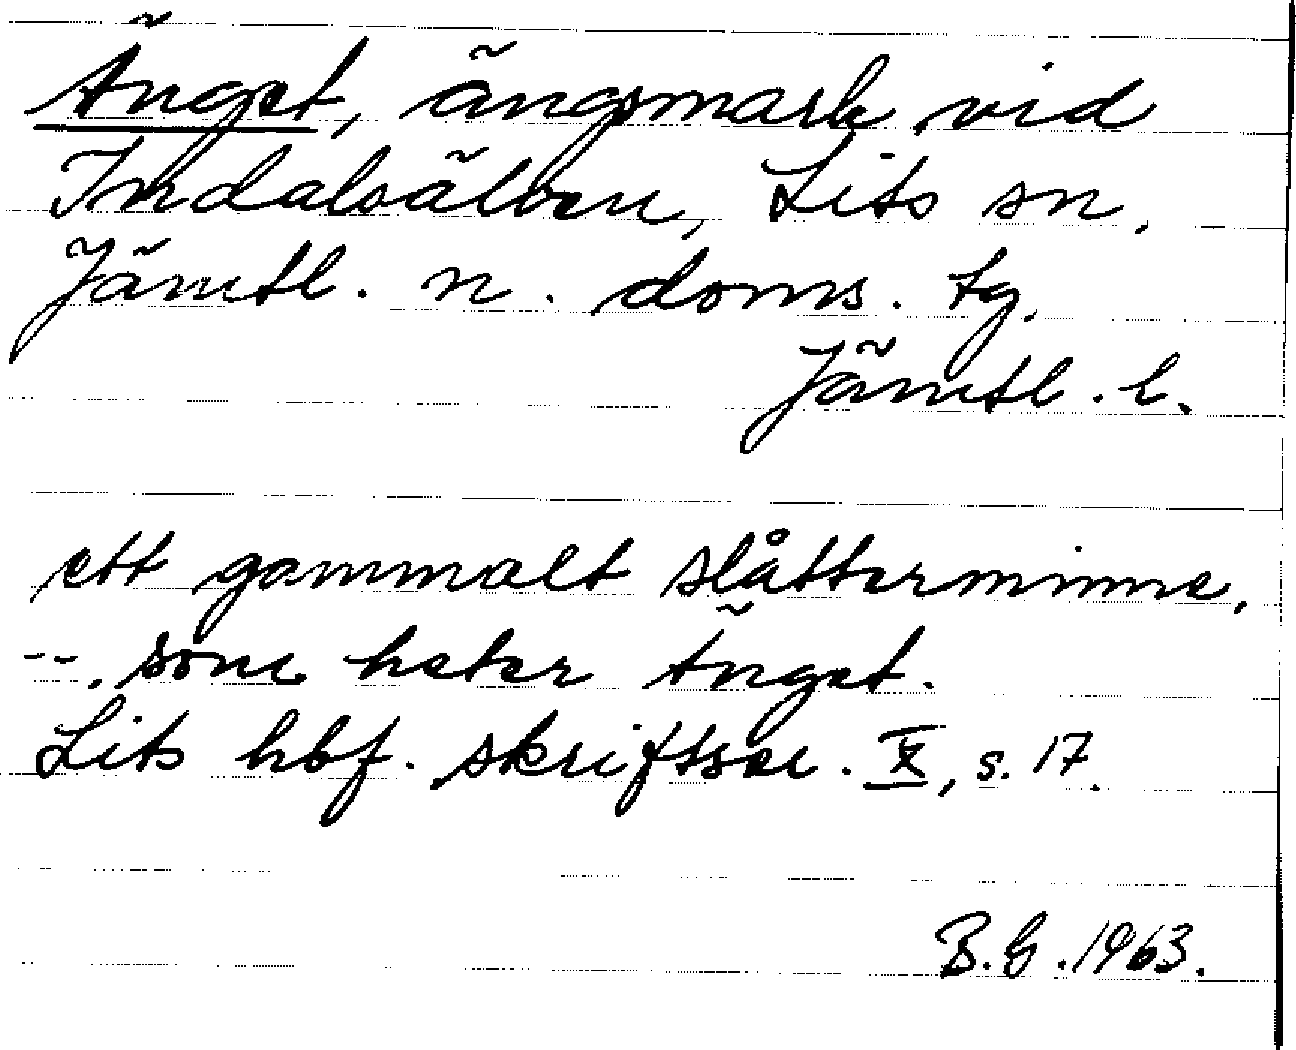 Änget, ängsmark vid
Indalsälven, Lits sn,
Jämtl. n. doms. tg.
Jämtl. l.
ett gammalt slåtterminne,
--, som heter Änget.
Lits hbf. skriftser. X, s. 17.
B.G. 1963.